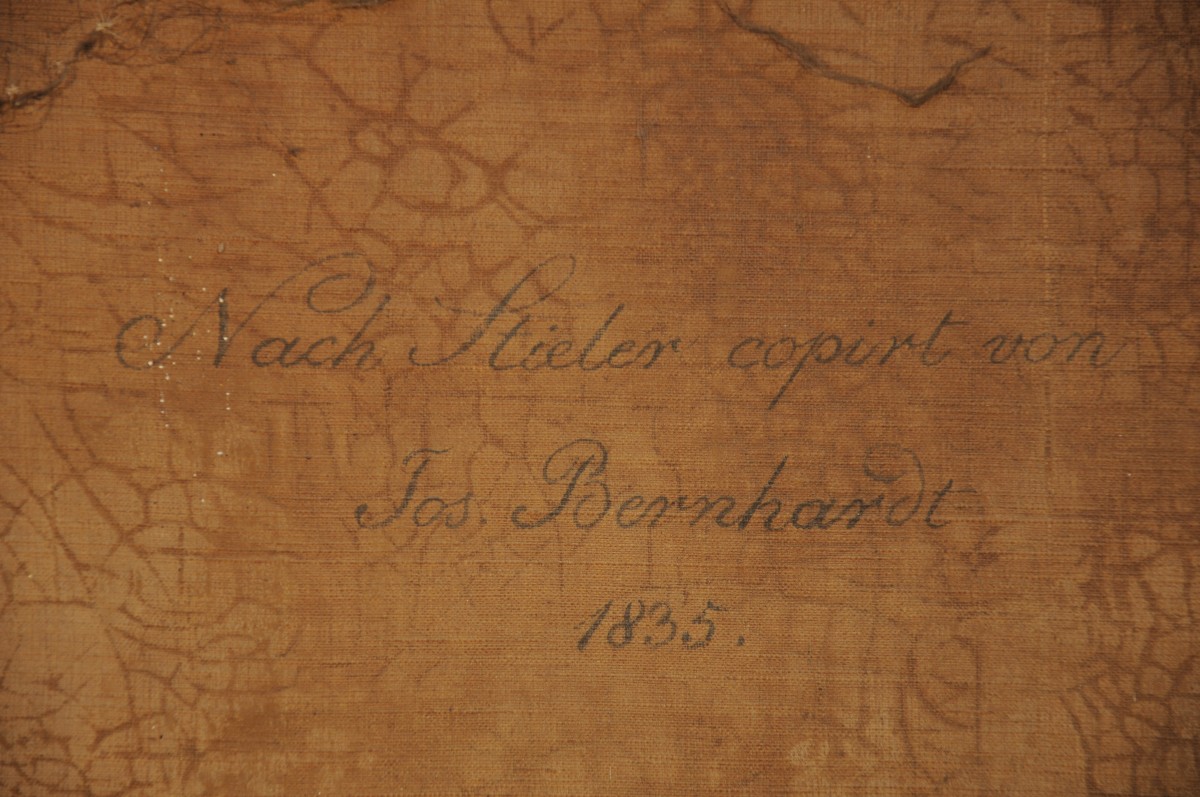 Nach Stieler copirt von
Jos. Bernhardt
1835.